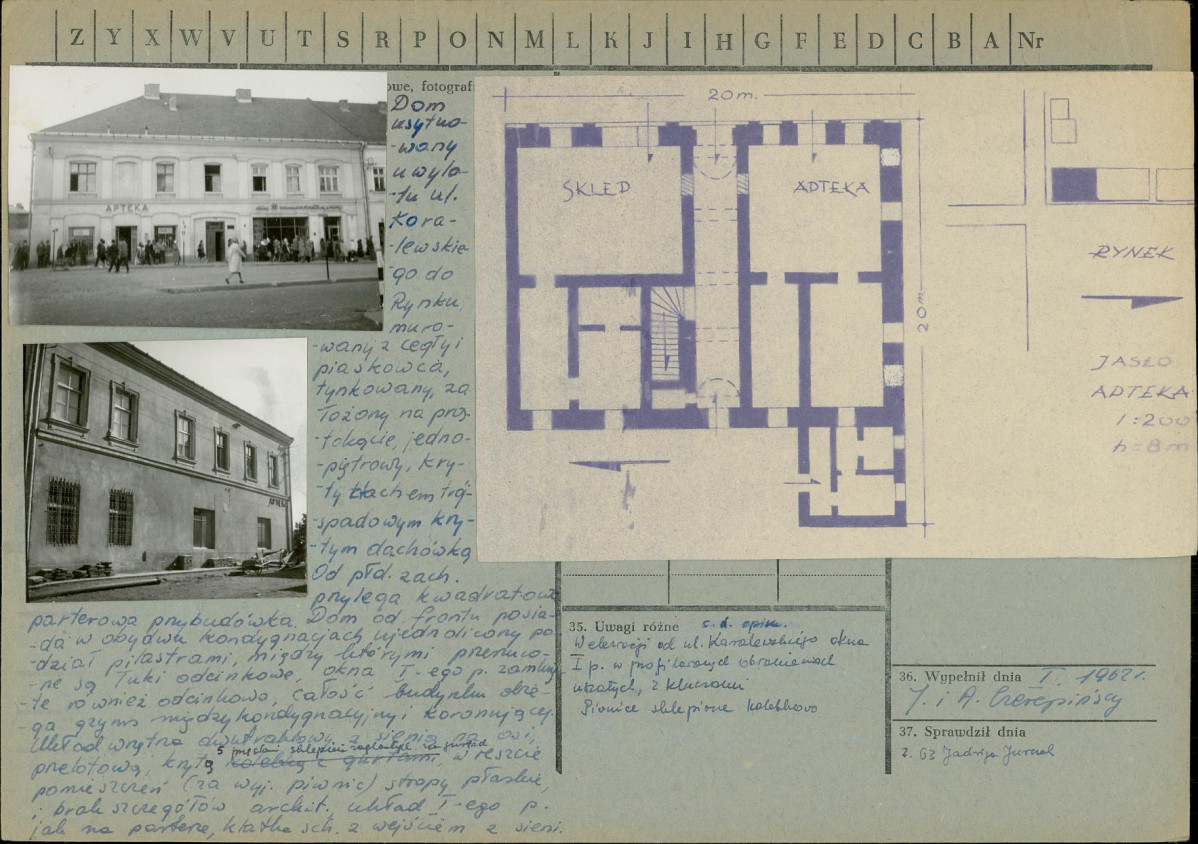 Z Y X W V U T S R P O N M L K J I H G F E D C B A Nr
owe, fotograf
Dom
usytuo-
-wany
u wylo-
-tu ul.
Kora-
-lewskie-
-go do
Rynku,
muro-
-wany z cegły i
piaskowca,
tynkowany, za
łożony na pros-
-tokącie, jedno-
-piętrowy, kry-
-ty dachem trój-
-spadowym kry-
-tym dachówką
Od płd. zach.
przylega kwadratowa
parterowa przybudówka. Dom od frontu posia-
-da w obydwu kondygnacjach ujednolicony po
-dział pilastrami, między którymi przerzuco-
-ne są łuki odcinkowe, okna I-ego p. zamknię
-te również odcinkowo, całość budynku obie-
-ga gzyms międzykondygnacyjny i koronujący.
Układ wnętrza dwutraktowy z sienią na osi,
5 przęsłami sklepień żaglastych na gurtach
przelotową, krytą kolebką z gurtami, w reszcie
pomieszczeń (za wyj. piwnic) stropy płaskie,
i brak szczegółów archit. układ I-ego p.
jak na parterze, klatka sch. z wejściem z sieni.
APTEKA
20 m.
SKLEP
APTEKA
20 m.
RYNEK
JASŁO
APTEKA
1:200
h=8m
35. Uwagi różne c. d. opisu.
W elewacji od ul. Koralewskiego okna
I p. w profilowanych obramieniach
uszatych, z kluczami
Piwnice sklepione kolebkowo
36. Wypełnił dnia I. 1962 r.
J. i A. Czerepińscy
37. Sprawdził dnia
2. 63 Jadwiga